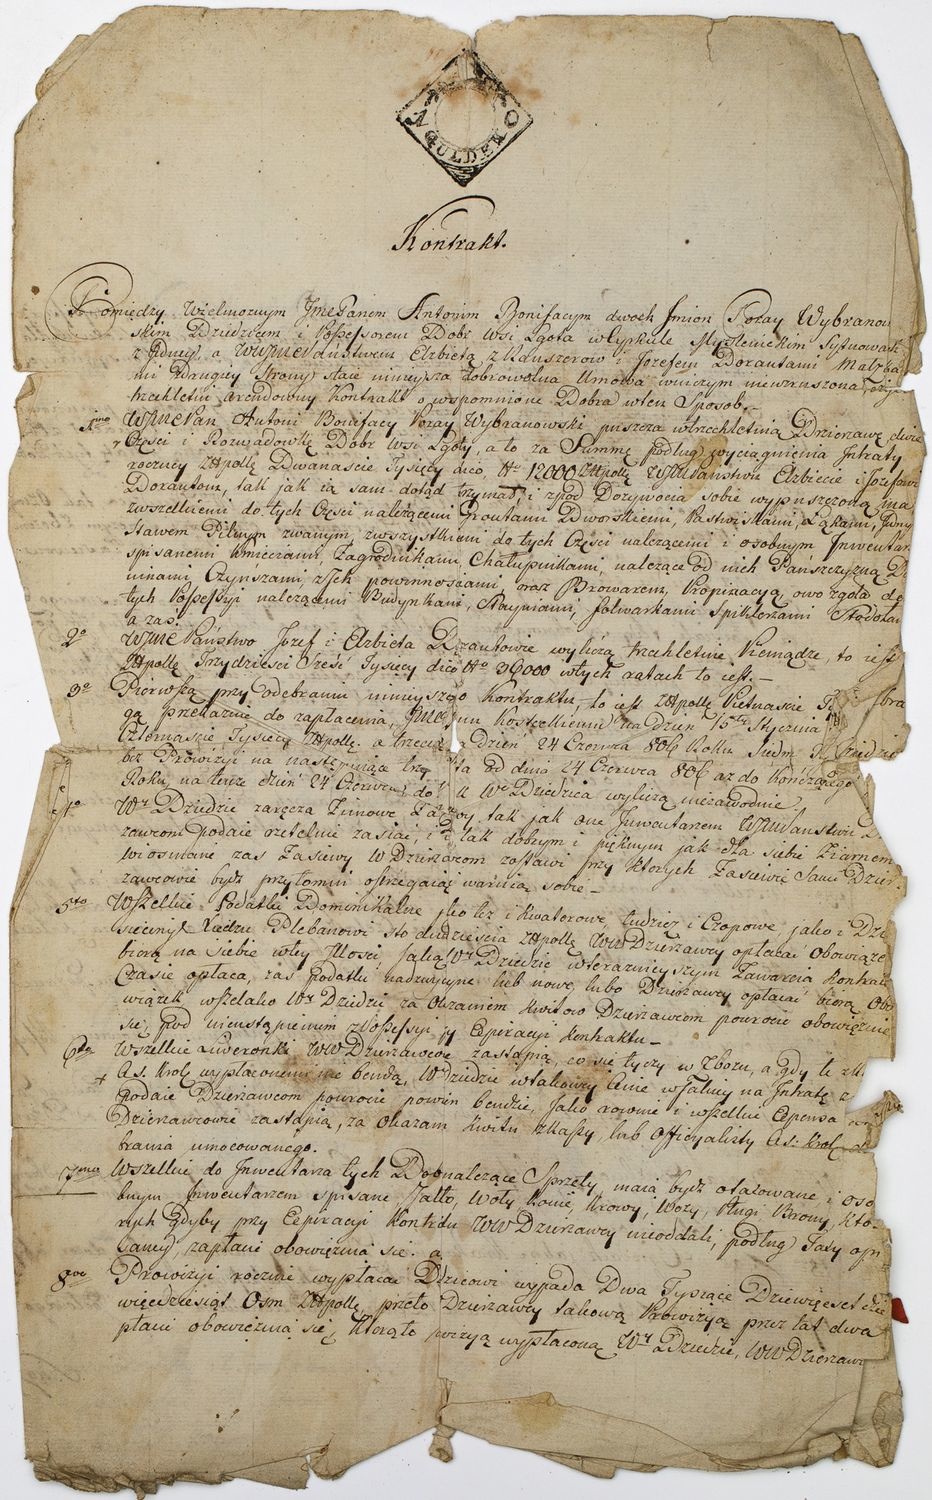 1 GULDEN
Kontrakt.
Pomiędzy Wielmoznym Jmc Panem Antonim Bonifacym dwoch Jmion Poray Wybranow
skim Dziedzicem i Possessorem Dobr Wsi Lgota w Cyrkule Myslenickim Sytuowach
z Jedney, a WW Państwem Elzbietą z Kanszerow i Jozefem Dorautami Małzką
mi z drugiey Strony staie ninieysza dobrowolna Umowa w niczym niewzruszona, czyli
trzechletni arendowny Kontrakt o wspomnione Dobra w ten Sposob.
1mo Pan Antoni Bonifacy Poray Wybranowski puszcza w trzechletnią Dzierzawę dwie
Części i Rozwadowkę Dobr Wsi Lgoty, a to za Summę podług wyciągnienia Intraty
roczney ZłPolłę Dwanascie Tysięcy dico 12000 ZłPolłę Państwu Elzbiecie i Jozefowi
Dorautom, tak jak ią sam dotąd trzymał, i zpod Dozywocia sobie wypuszczoną ma,
zwszelkiemi do tych Części nalezącemi Gruntami Dworskiemi, Pastwiskami, Łąkami, Jedny
Stawem Pilnym zwanym, zwszystkiemi do tych Części nalezącemi i osobnym Inwentar
spisanemi Kmieciami, Zagrodnikami, Chałupnikami, nalezące od nich Pańszczyzną Da
ninami, Czynszami, z Jch powinnosciami oraz Browarem, Propinacyą, owo zgoła do
tych Possessyi nalezącemi Budynkami, Stayniami, folwarkami Spiklerzami Stodołam
a zas.
2o Państwo Jozef i Elzbieta Dorautowie wyliczą trzechletnie Pieniądze, to iest
ZłPolłę Trzydziesci Szesć Tysięcy dico 36000 w tych ratach to iest.
3o Pierwszą przy odebraniu ninieyszego Kontraktu, to iest ZłPolłę Pietnascie
gą przekaznie do zapłacenia, Kosteckiemu na dzień 15 Stycznia
Czternascie Tysięcy ZłPolłę. a trzecią na dzień 24 Czerwca 806 Roku Siedm
bez Prowizyi na następuiące lata od dnia 24 Czerwca 806 az do Kończącego
Roku, na tenze dzień 24 Czerwca, do Dziedzica wyliczą niezawodnie.
4o Wy Dziedzic zaręcza Zimowe Zasiewy, tak jak one Inwentarzem Państwu
zawroni podaie rzetelnie zasiać, i tak dobrym i pięknym jak dla siebie Ziarnem
wiosnianne zas Zasiewy WDzierzawcom zostawi przy ktorych Zasiewie Sami Dzier
zawcowie bydz przytomni ostrzegaią sobie
5to Wszelkie Podatki Dominikalne jako tez i Kwaterowe, tudziez i Czopowe, jako i Dzie
sięcinę Xiedzu Plebanowi sto dwadzieścia ZłPolłę WW Dzierzawcy opłacać obowiąz
biorą na siebie w tey Jlosci, jaką Wy Dziedzic w terazniejszym Zawarcia Kontrak
Czasie opłaca, zas Podatki nadzwyczajne lub nowe, lubo Dzierzawcy opłacać biorą Obo
wiązek, wszelako Wy Dziedzic za Okazaniem Kwitow Dzierzawcom powrocie obowiązuie
się, pod nieustąpieniem z Possessyi przy Experacyi Kontraktu
6to Wszelkie Liweronki WW Dzierzawcow zastąpią, co się tyczy w Zbozu, a gdy te z K:
As. Krol: wypłaconemi nie bendą, WDziedzic w takowey Cenie w jakiey na Intratę z
podaie Dzierzawcom powrocie powin bendzie, Jako rownie i wszelkie Expensa
Dzierzawcowie zastąpią, za Okazem Kwitu z Kassy, lub Officyalisty As: Krol: do
brania umocowanego.
7mo Wszelkie do Inwentarza tych Dobr nalezące Sprzęty maią bydz otaxowane i oso
bnym Inwentarzem spisane Jakto, Woły Konie, Krowy, Wozy, Pługi Brony, Kto
rych gdyby przy Experacyi Kontrktu WW Dzierzawcy nieoddali, podług Taxy opi
saney, zapłacić obowięznią się. a
8vo Prowizyi rocznie wypłacać Dziedzicowi wypada Dwa Tysiące Dziewięcset dzie
więcdziesiąt Osm ZłPolłę, przeto Dzierzawcy takową Prowizyą przez lat dwa
płacić obowięznią się, Ktorą to wypłaconą Wy Dziedzic, WW Dzierzaw